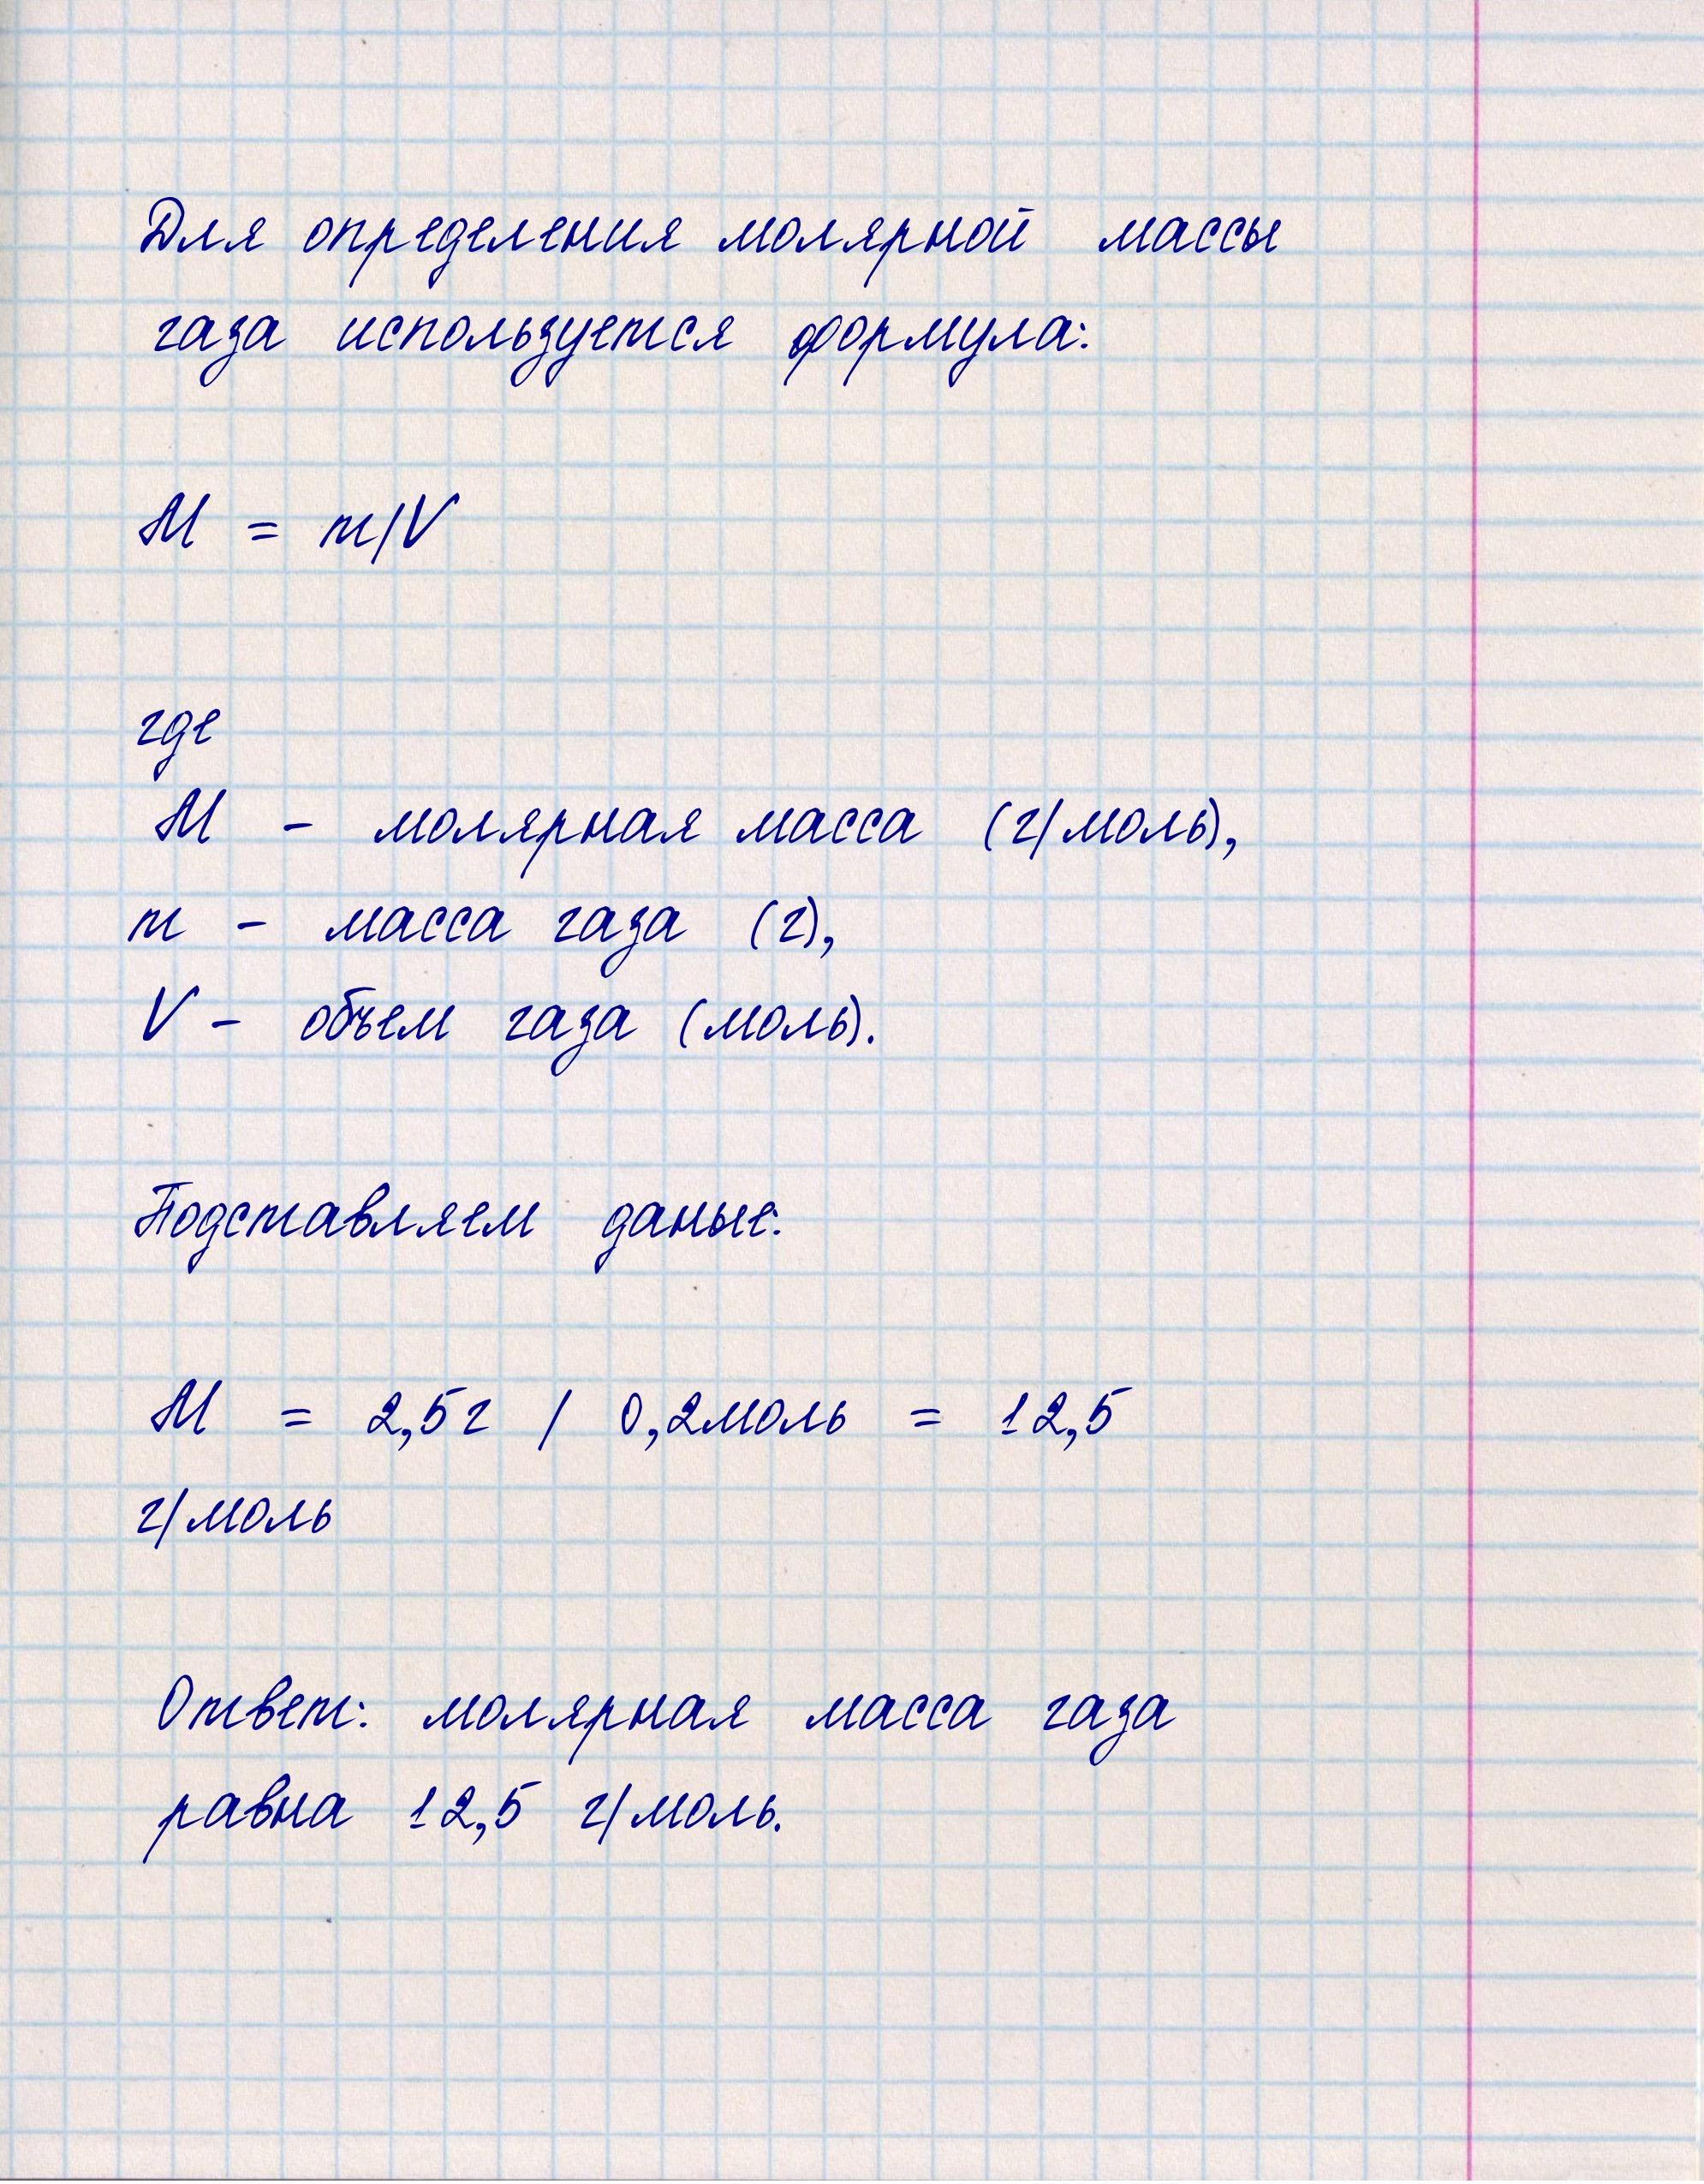 Для определения молярной массы
газа используется формула:
M = m/V
где
M - молярная масса (г/моль),
m - масса газа (г),
V - объем газа (моль).
Подставляем даные:
M = 2,5г / 0,2моль = 12,5
г/моль
Ответ: молярная масса газа
равна 12,5 г/моль.